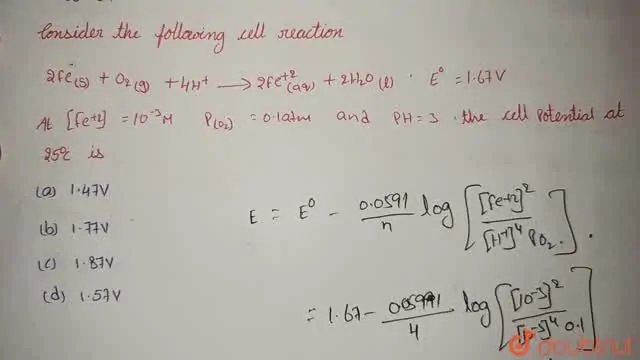 Consider the following cell reaction
2Fe(s) + O2(g) + 4H+ → 2Fe+2(aq) + 2H2O(l). E° = 1.67V
At [Fe+2] = 10-3M P(O2) = 0.1atm and PH=3. the cell potential at
25°C is
(a) 1.47V
(b) 1.77V
(c) 1.87V
(d) 1.57V
E = E° - 0.0591/n log [[Fe+2]2/[H+]4 PO2.].
= 1.67 - /4 log [[10-3]2/[10-3]4 0.1]
doubtnut